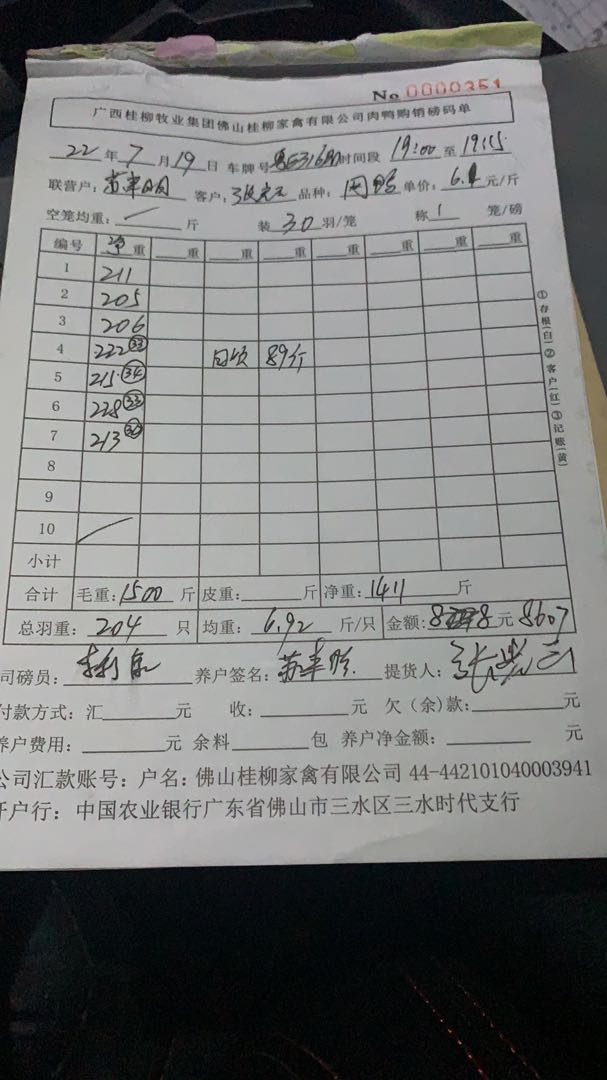 No 0000351
广西桂柳牧业集团佛山桂柳家禽有限公司肉鸭购销磅码单
22 年 7 月 19 日 车牌号 时间段 19:00 至 19:15
联营户: 客户: 品种: 单价: 6.1 元/斤
空笼均重: 斤 装 30 羽/笼 称 1 笼/磅
编号 净重 重 重 重 重 重 重 重
1 211
2 205
3 206
4 222 33 89斤
5 215 34
6 228 33
7 213 30
8
9
10
小计
合计 毛重: 1500 斤 皮重: 斤 净重: 1411 斤
总羽重: 204 只 均重: 6.92 斤/只 金额: 元 8607
司磅员: 养户签名: 提货人:
付款方式: 汇 元 收: 元 欠(余)款: 元
养户费用: 元 余料 包 养户净金额: 元
公司汇款账号: 户名: 佛山桂柳家禽有限公司 44-442101040003941
开户行: 中国农业银行广东省佛山市三水区三水时代支行
①存根(白)②客户(红)③记账(黄)